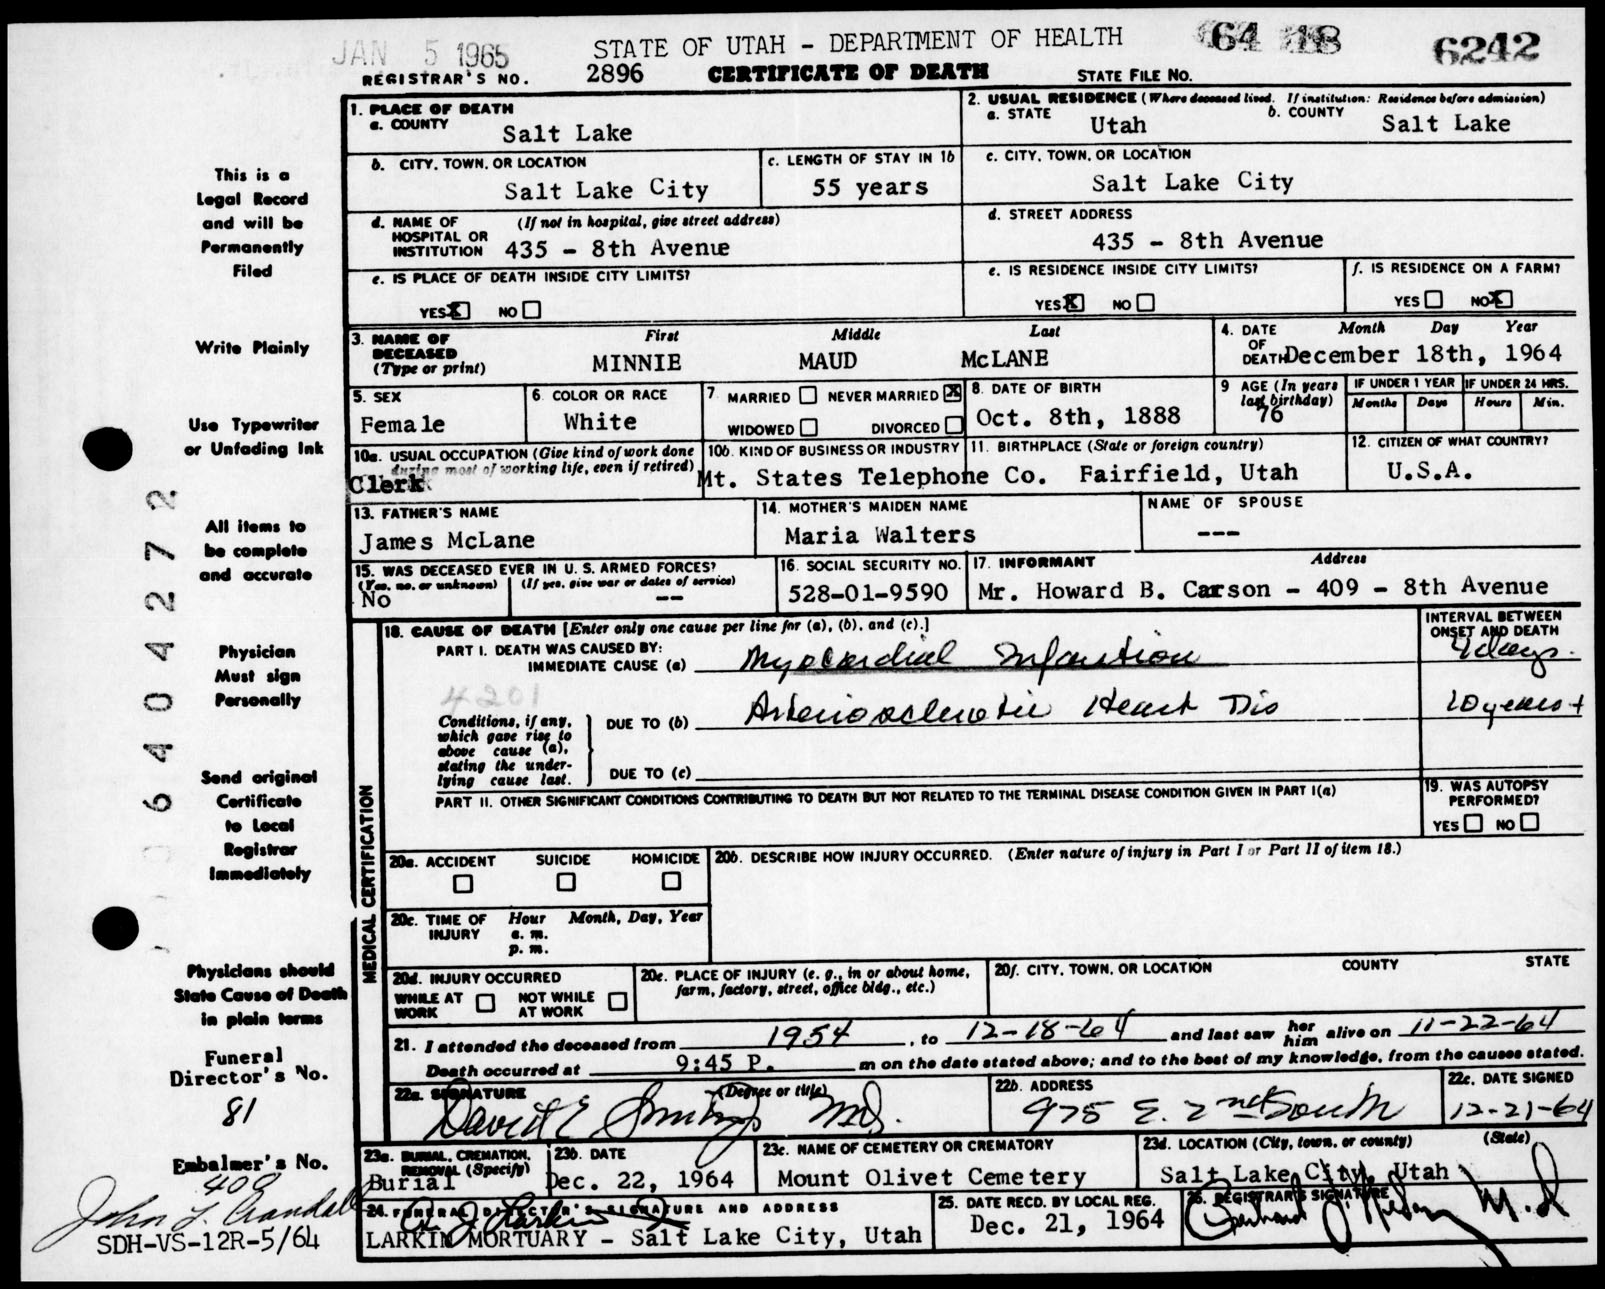 JAN 5 1965
STATE OF UTAH - DEPARTMENT OF HEALTH
64 18 6242
REGISTRAR'S NO. 2896 CERTIFICATE OF DEATH STATE FILE NO.
This is a
Legal Record
and will be
Permanently
Filed
Write Plainly
Use Typewriter
or Unfading Ink
All items to
be complete
and accurate
Physician
Must sign
Personally
Send original
Certificate
to Local
Registrar
Immediately
Physicians should
State Cause of Death
in plain terms
Funeral
Director's No.
81
Embalmer's No.
400
John L. Crandall
SDH-VS-12R-5/64
64 04272
1. PLACE OF DEATH
a. COUNTY Salt Lake
2. USUAL RESIDENCE (Where deceased lived. If institution: Residence before admission)
a. STATE Utah b. COUNTY Salt Lake
b. CITY, TOWN, OR LOCATION Salt Lake City
c. LENGTH OF STAY IN 1b 55 years
c. CITY, TOWN, OR LOCATION
Salt Lake City
d. NAME OF HOSPITAL OR INSTITUTION (If not in hospital, give street address)
435 - 8th Avenue
d. STREET ADDRESS
435 - 8th Avenue
e. IS PLACE OF DEATH INSIDE CITY LIMITS?
YES X NO
e. IS RESIDENCE INSIDE CITY LIMITS?
YES X NO
f. IS RESIDENCE ON A FARM?
YES NO X
3. NAME OF DECEASED (Type or print)
First Middle Last
MINNIE MAUD McLANE
4. DATE OF DEATH Month Day Year
December 18th, 1964
5. SEX
Female
6. COLOR OR RACE
White
7. MARRIED NEVER MARRIED X
WIDOWED DIVORCED
8. DATE OF BIRTH
Oct. 8th, 1888
9 AGE (In years last birthday)
76
IF UNDER 1 YEAR IF UNDER 24 HRS.
Months Days Hours Min.
10a. USUAL OCCUPATION (Give kind of work done during most of working life, even if retired)
Clerk
10b. KIND OF BUSINESS OR INDUSTRY
Mt. States Telephone Co.
11. BIRTHPLACE (State or foreign country)
Fairfield, Utah
12. CITIZEN OF WHAT COUNTRY?
U.S.A.
13. FATHER'S NAME
James McLane
14. MOTHER'S MAIDEN NAME
Maria Walters
NAME OF SPOUSE
---
15. WAS DECEASED EVER IN U. S. ARMED FORCES?
(Yes, no, or unknown) (If yes, give war or dates of service)
No --
16. SOCIAL SECURITY NO.
528-01-9590
17. INFORMANT Address
Mr. Howard B. Carson - 409 - 8th Avenue
MEDICAL CERTIFICATION
18. CAUSE OF DEATH [Enter only one cause per line for (a), (b), and (c).]
INTERVAL BETWEEN ONSET AND DEATH
PART I. DEATH WAS CAUSED BY:
IMMEDIATE CAUSE (a) Myocardial Infarction
days.
4201
Conditions, if any, which gave rise to above cause (a), stating the underlying cause last.
DUE TO (b) Arteriosclerotic Heart Dis 10 years +
DUE TO (c)
PART II. OTHER SIGNIFICANT CONDITIONS CONTRIBUTING TO DEATH BUT NOT RELATED TO THE TERMINAL DISEASE CONDITION GIVEN IN PART I(a)
19. WAS AUTOPSY PERFORMED?
YES NO
20a. ACCIDENT SUICIDE HOMICIDE
20b. DESCRIBE HOW INJURY OCCURRED. (Enter nature of injury in Part I or Part II of item 18.)
20c. TIME OF INJURY Hour Month, Day, Year
a. m.
p. m.
20d. INJURY OCCURRED
WHILE AT WORK NOT WHILE AT WORK
20e. PLACE OF INJURY (e. g., in or about home, farm, factory, street, office bldg., etc.)
20f. CITY, TOWN, OR LOCATION COUNTY STATE
21. I attended the deceased from 1954, to 12-18-64 and last saw her him alive on 11-22-64
Death occurred at 9:45 P. m on the date stated above; and to the best of my knowledge, from the causes stated.
22a. SIGNATURE (Degree or title)
David E MD.
22b. ADDRESS
975 E. 2nd South
22c. DATE SIGNED
12-21-64
23a. BURIAL, CREMATION, REMOVAL (Specify)
Burial
23b. DATE
Dec. 22, 1964
23c. NAME OF CEMETERY OR CREMATORY
Mount Olivet Cemetery
23d. LOCATION (City, town, or county) (State)
Salt Lake City, Utah
24. FUNERAL DIRECTOR'S SIGNATURE AND ADDRESS
LARKIN MORTUARY - Salt Lake City, Utah
25. DATE RECD. BY LOCAL REG.
Dec. 21, 1964
26. REGISTRAR'S SIGNATURE
M.D